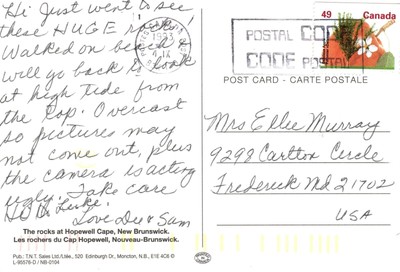 Hi Just went to see
these HUGE rocks!
Walked on beach &
will go back to look
at high Tide from
the Top. Overcast
so pictures may
not come out, plus
the camera is acting
ugly. Take care
Love Dee & Sam
The rocks at Hopewell Cape, New Brunswick.
Les rochers du Cap Hopewell, Nouveau-Brunswick.
Pub.: T.N.T. Sales Ltd./Ltée., 520 Edinburgh Dr., Moncton, N.B., E1E 4C6 ©
L-95578-D / NB-0104
49 Canada
POSTAL CODE
CODE POSTAL
POST CARD - CARTE POSTALE
Mrs Ellie Murray
9298 Carlton Circle
Frederick Md 21702
USA